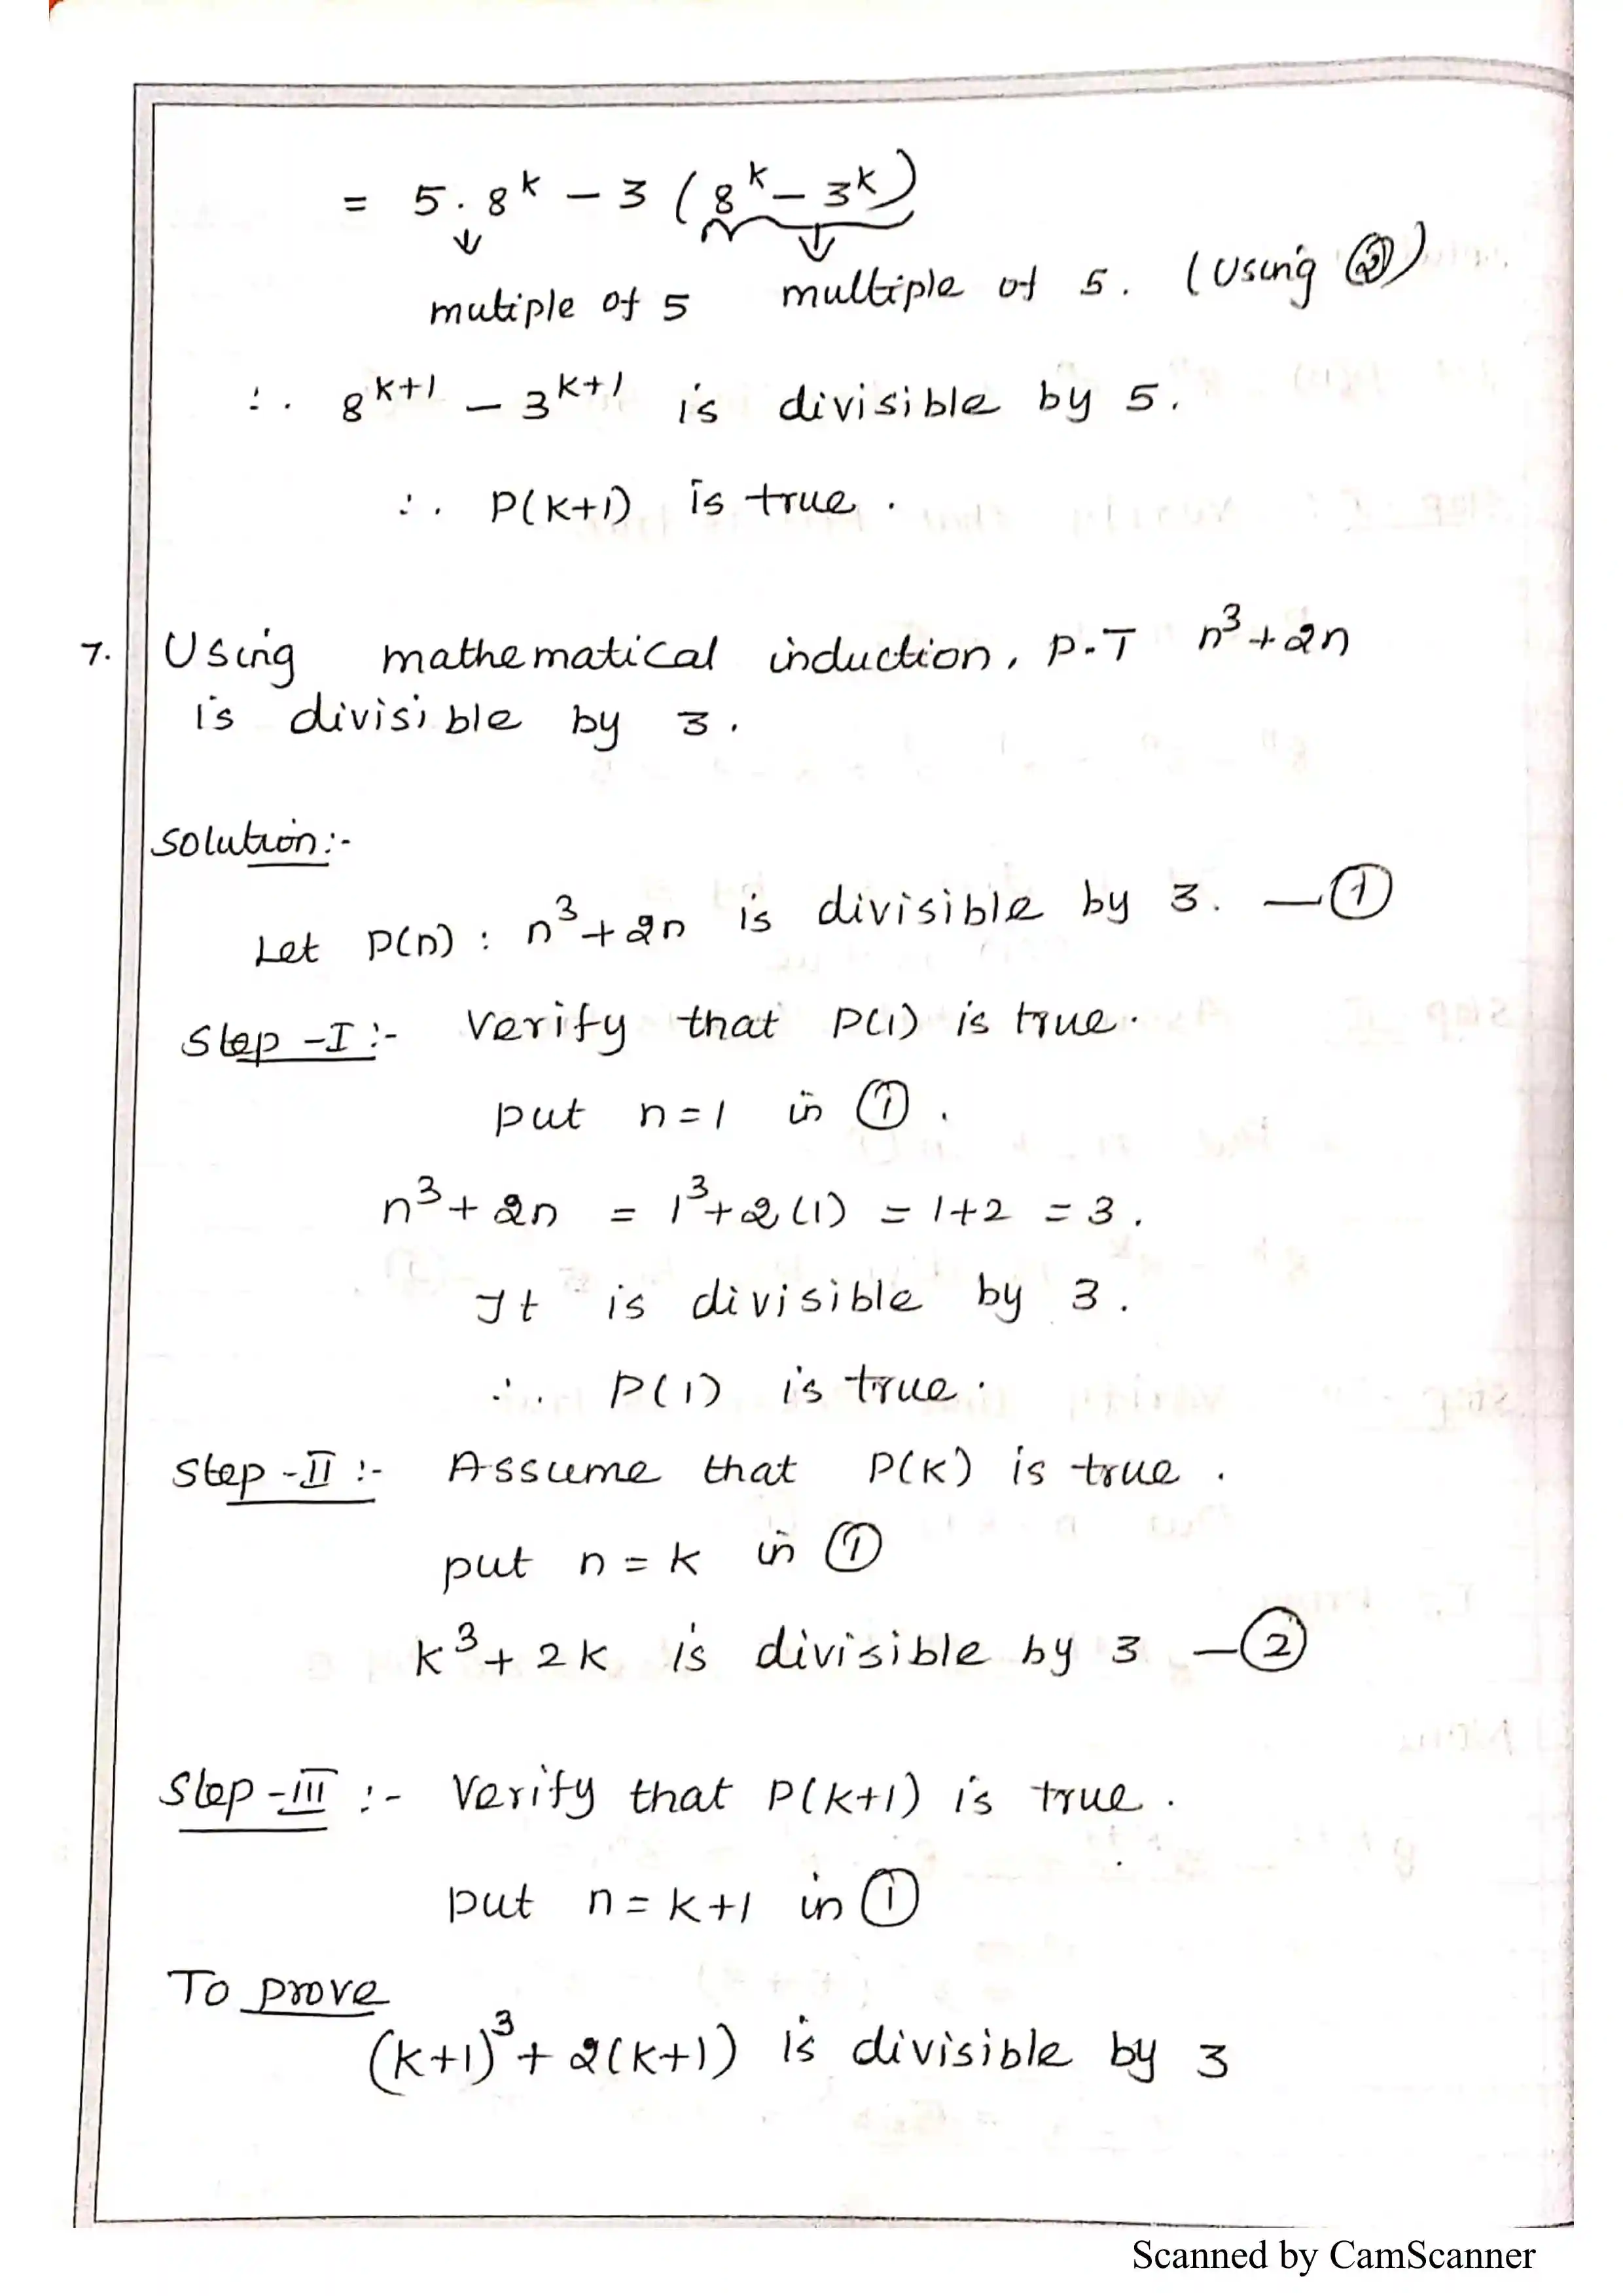 = 5.8^k - 3 (8^k - 3^k)
↓ ↓
mutiple of 5 multiple of 5. (Using ②)
∴ 8^{k+1} - 3^{k+1} is divisible by 5.
∴ P(k+1) is true.
7. Using mathematical induction, P.T n³+2n
is divisible by 3.
Solution:-
Let P(n) : n³+2n is divisible by 3. —①
Step -I :- Verify that P(1) is true.
put n=1 in ①.
n³+2n = 1³+2(1) = 1+2 = 3.
It is divisible by 3.
∴ P(1) is true.
Step -II :- Assume that P(K) is true.
put n=k in ①
k³+2k is divisible by 3 —②
Step -III :- Verify that P(k+1) is true.
put n=k+1 in ①
To prove
(k+1)³+2(k+1) is divisible by 3
Scanned by CamScanner